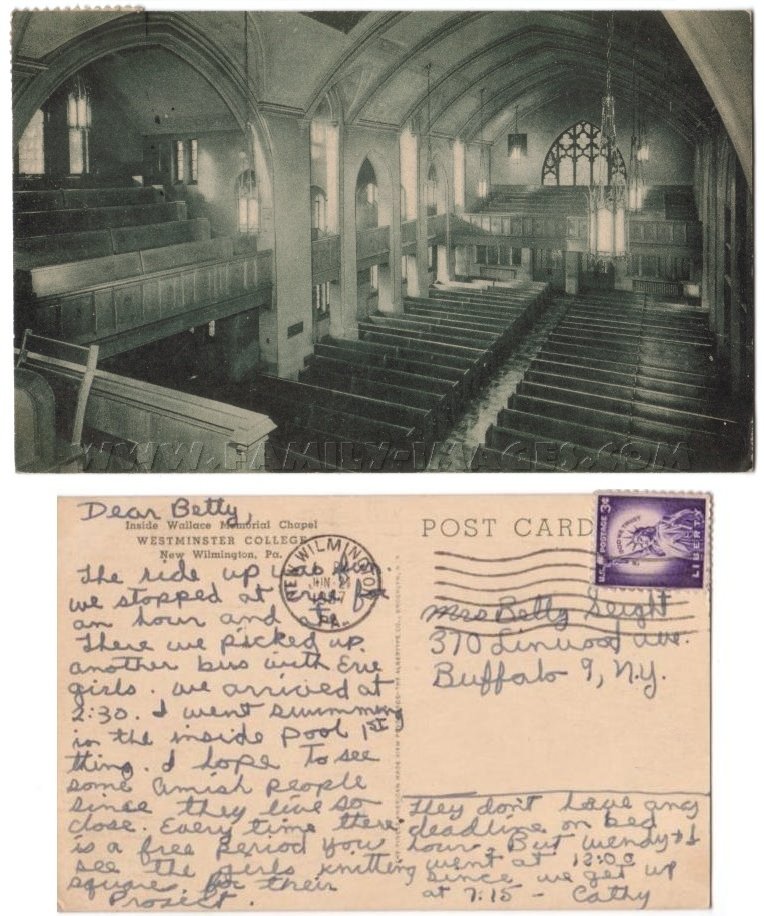 WWW.FAMILY-IMAGES.COM
Dear Betty,
Inside Wallace Memorial Chapel
WESTMINSTER COLLEGE
New Wilmington, Pa.
The ride up was
we stopped at Erie for
an hour and
There we picked up
another bus with Erie
girls. We arrived at
2:30. I went swimming
in the inside pool 1st
thing. I hope to see
some Amish people
since they live so
close. Every time there
is a free period you
see the girls knitting
squares for their
Project.
POST CARD
NEW WILMINGTON
JUN 21
PA.
U.S. POSTAGE 3¢
IN GOD WE TRUST
LIBERTY
Mrs Betty Seight
370 Linwood Ave.
Buffalo 9, N.Y.
They don't have any
deadline on bed
hour. But Wendy + I
went at 12:00
since we get up
at 7:15 - Cathy